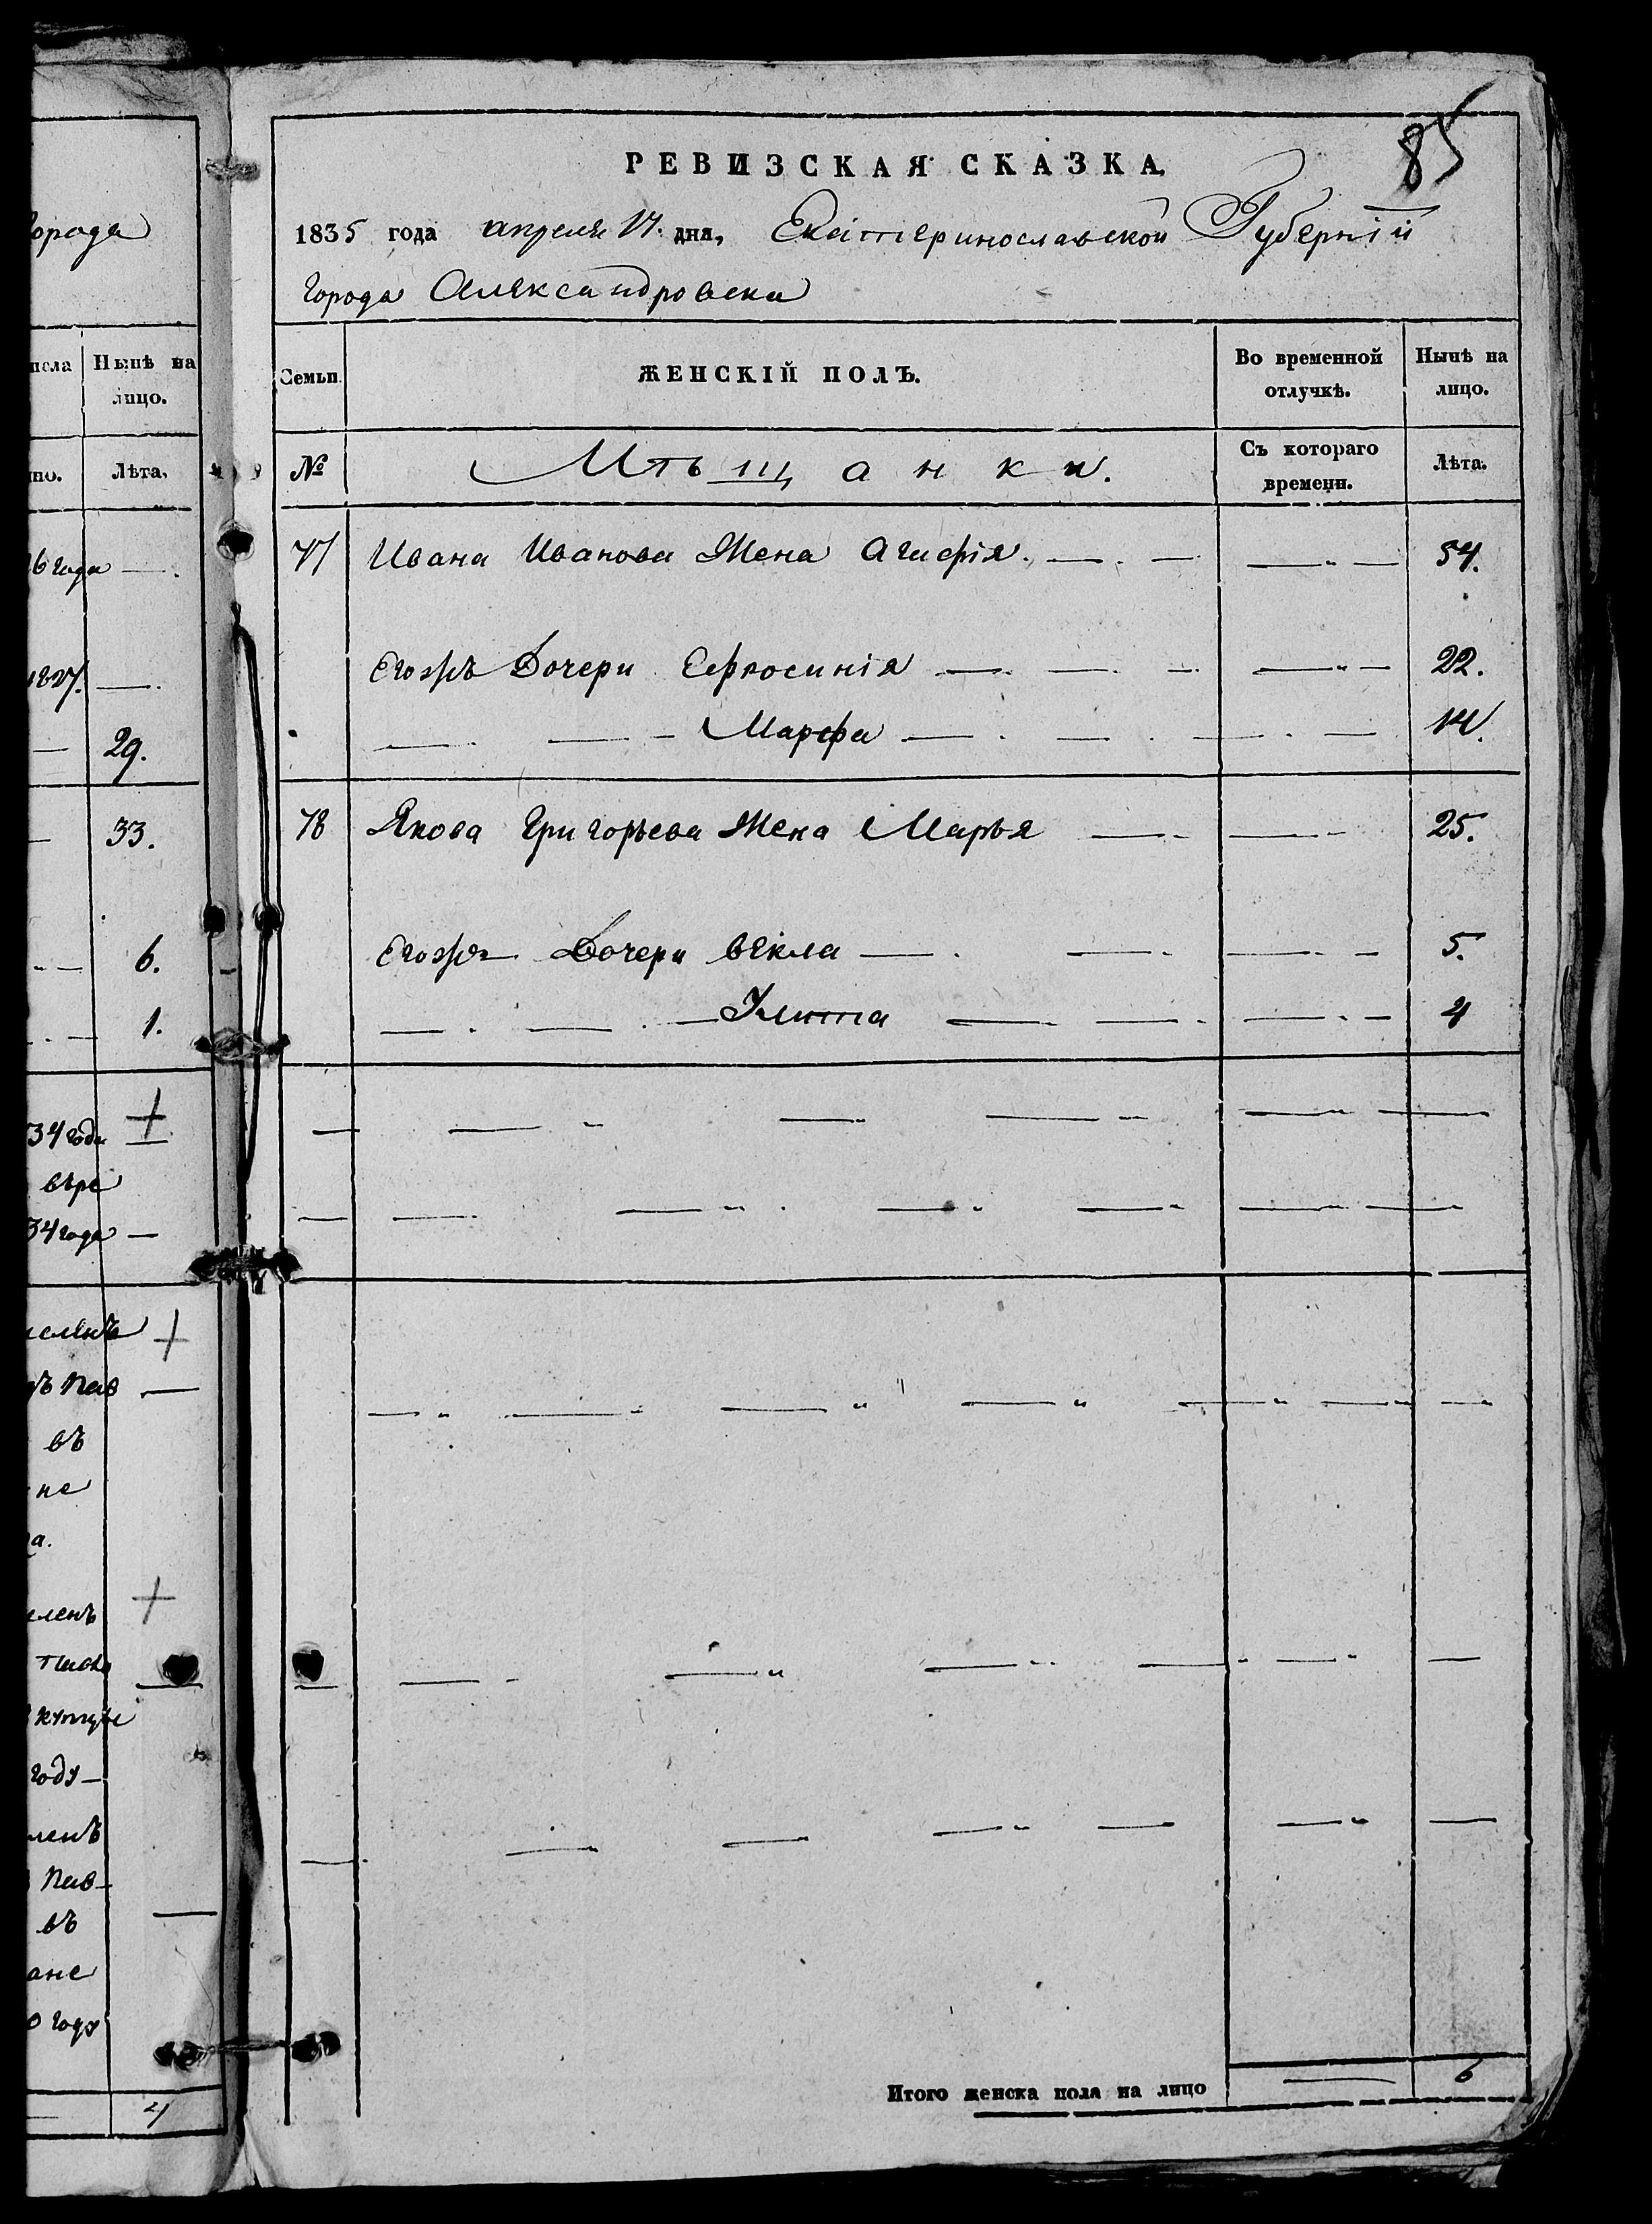 орода
пола Нынѣ на лицо.
но. Лѣта.
6 года
1827.
29.
33.
6.
1.
34 года
вѣре
34 года
ъ Пав
въ
не
а.
ленъ
году
ленъ
Пав
въ
ане
0 году
4
85
РЕВИЗСКАЯ СКАЗКА.
1835 года апреля 17. дня, Екатеринославской Губерніи
города Александровска
Семьи. ЖЕНСКІЙ ПОЛЪ. Во временной отлучкѣ. Нынѣ на лицо.
№ Мѣщанки. Съ котораго времени. Лѣта.
77 Ивана Иванова Жена Агафія. 54.
Егожъ Дочери Ефросинія 22.
Марфа 14.
78 Якова Григорьева Жена Марья 25.
Егожъ Дочери Векла 5.
Улита 4
Итого женска пола на лицо 6